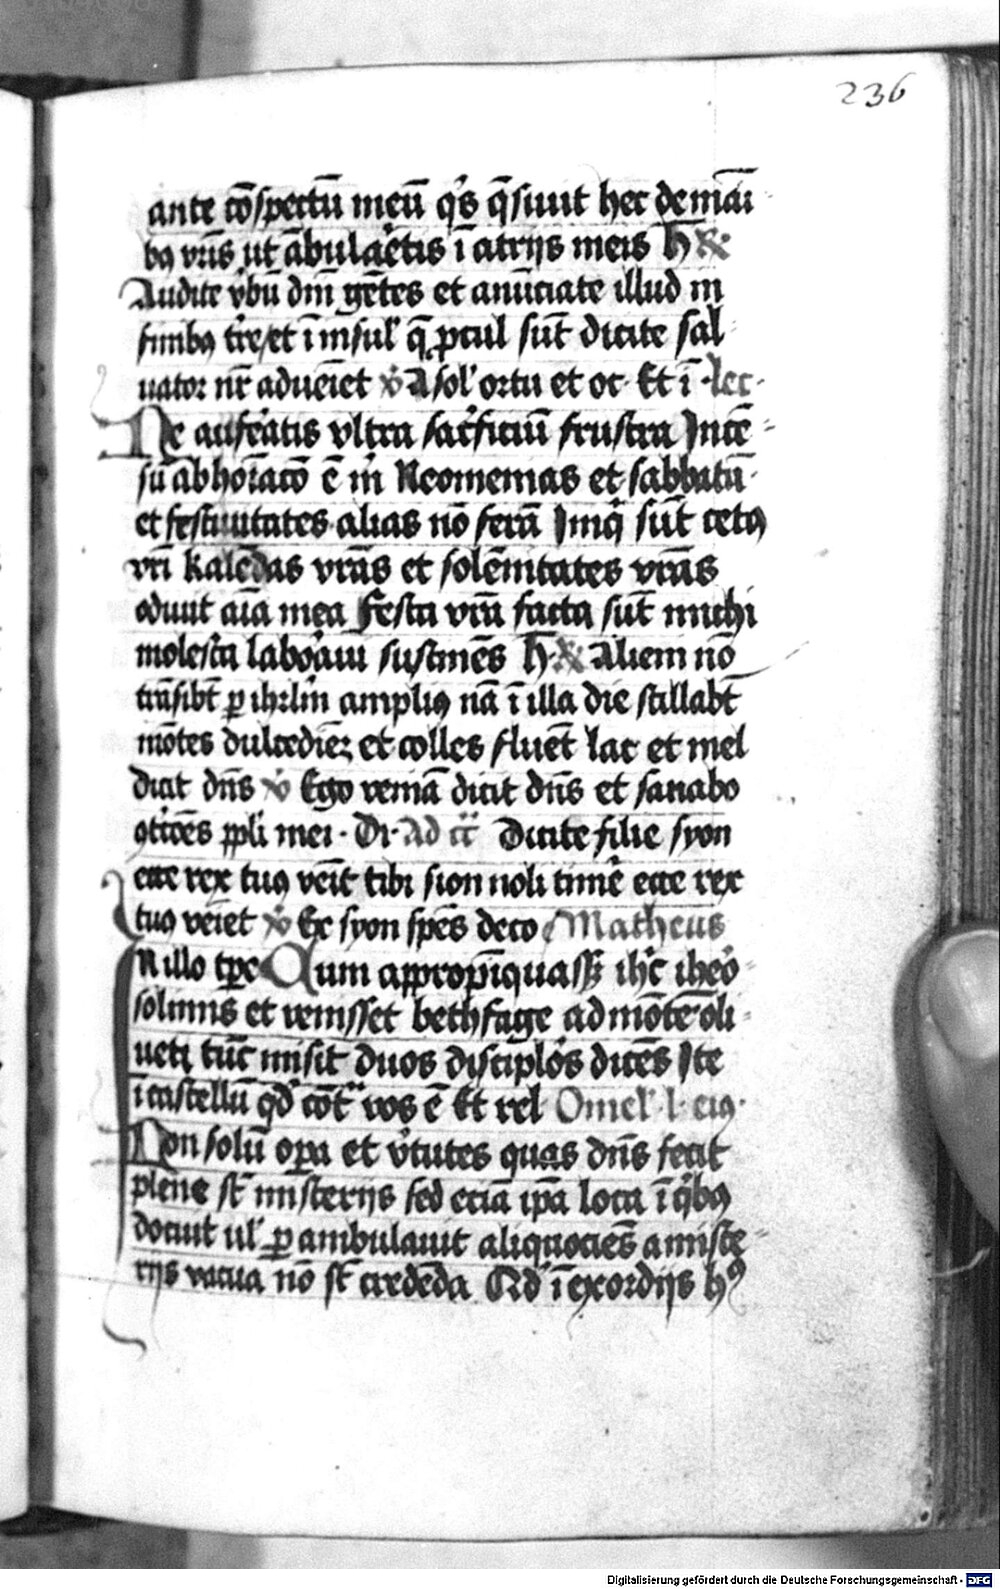 236
ante cōspectū meū q's q̄siuit hec de mãi
bꝫ vr̄is ut ābulaētis ī atrijs meis h̄ R
Audite v̓bū dn̄i gētes et anūciate illud in
finibꝫ tr̄e et ī insul' q̄ ꝓcul sūt dicite sal
uator nr̄ adueīet v̓ A sol' ortu et oc· Et ī· lec·
Ne auferatis vltra sac̓ficiū frustra Incē
sū abhoīacō ē m̓ Neomenias et sabbatū
et festiuitates alias nō ferā Iniq̓ sūt cetꝰ
vr̄i kalēdas vrās et solēnitates vrās
odiuit aīa mea Festa vrā facta sūt michi
molesta laboraui sustinēs h̄· R Aliem nō
trāsibt̄ ꝑ ihrlm̄ ampliꝰ nā ī illa die stillabt̄
mōtes dulcedīeꝫ et colles fluēt lac et mel
dicit dn̄s v̓ Ego veniā dicit dn̄s et sanabo
ꝯtͥcōes ppli mei· Dr· Ad cā Dicite filie syon
ecce rex tuꝰ veīt tibi sion noli timē ecce rex
tuꝰ veīet v̓ Ex syon spēs deco Matheus
IN illo tp̄e Cum appropīquass3 ihc̄ ihero
solimis et venisset bethfage ad mōtē oli
ueti tūc misit duos discip̄los dicēs Ite
ī castellū qd̓ cōtͣ vos ē Et rel Omel' l· eiꝰ·
Non solū opa et v̓tutes quas dn̄s fecit
plene st̄ misterijs sed eciā ip̄a loca ī qͥbꝫ
docuit ul' ꝑambulauit aliquociēs a miste
rijs vacua nō st̄ credēda Qd̓ ī exordijs hꝰ
Digitalisierung gefördert durch die Deutsche Forschungsgemeinschaft - DFG